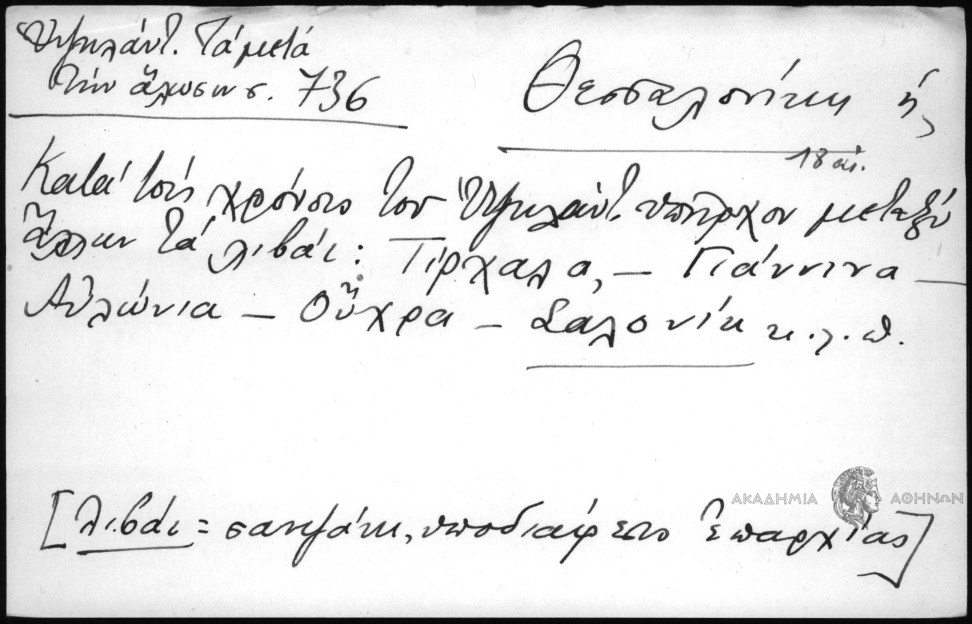 Ὑψηλάντ. Τά μετά
τήν ἅλωσιν σ. 736
Θεσσαλονίκη ἡ
18 αἰ.
Κατά τούς χρόνους τοῦ Ὑψηλάντ. ὑπῆρχον μεταξύ
ἄλλων τά λιβάι: Τίρχαλα, – Γιάννινα –
Αὐλώνια – Οὔχρα – Σαλονίκ κ.λ.π.
[λιβάι = σαντζάκι, ὑποδιαίρεσις Ἐπαρχίας]
ΑΚΑΔΗΜΙΑ ΑΘΗΝΩΝ